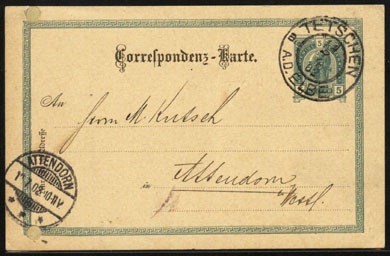 Correspondenz-Karte.
TETSCHEN
A.D. ELBE
5
5
An
Herrn M Kutsch
Adresse
in Attendorn
Westf.
ATTENDORN